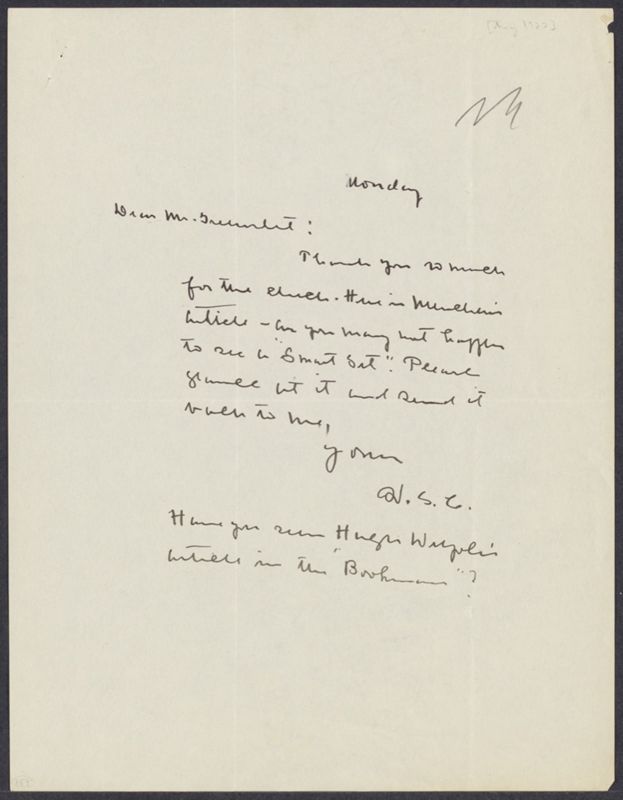 Monday
Dear Mr. Greenslet:
Thank you so much
for the check. Here is Mencken's
article - as you may not happen
to see a "Smart Set". Please
glance at it and send it
back to me,
Yours
W. S. C.
Have you seen Hugh Walpole's
article in the "Bookman"?